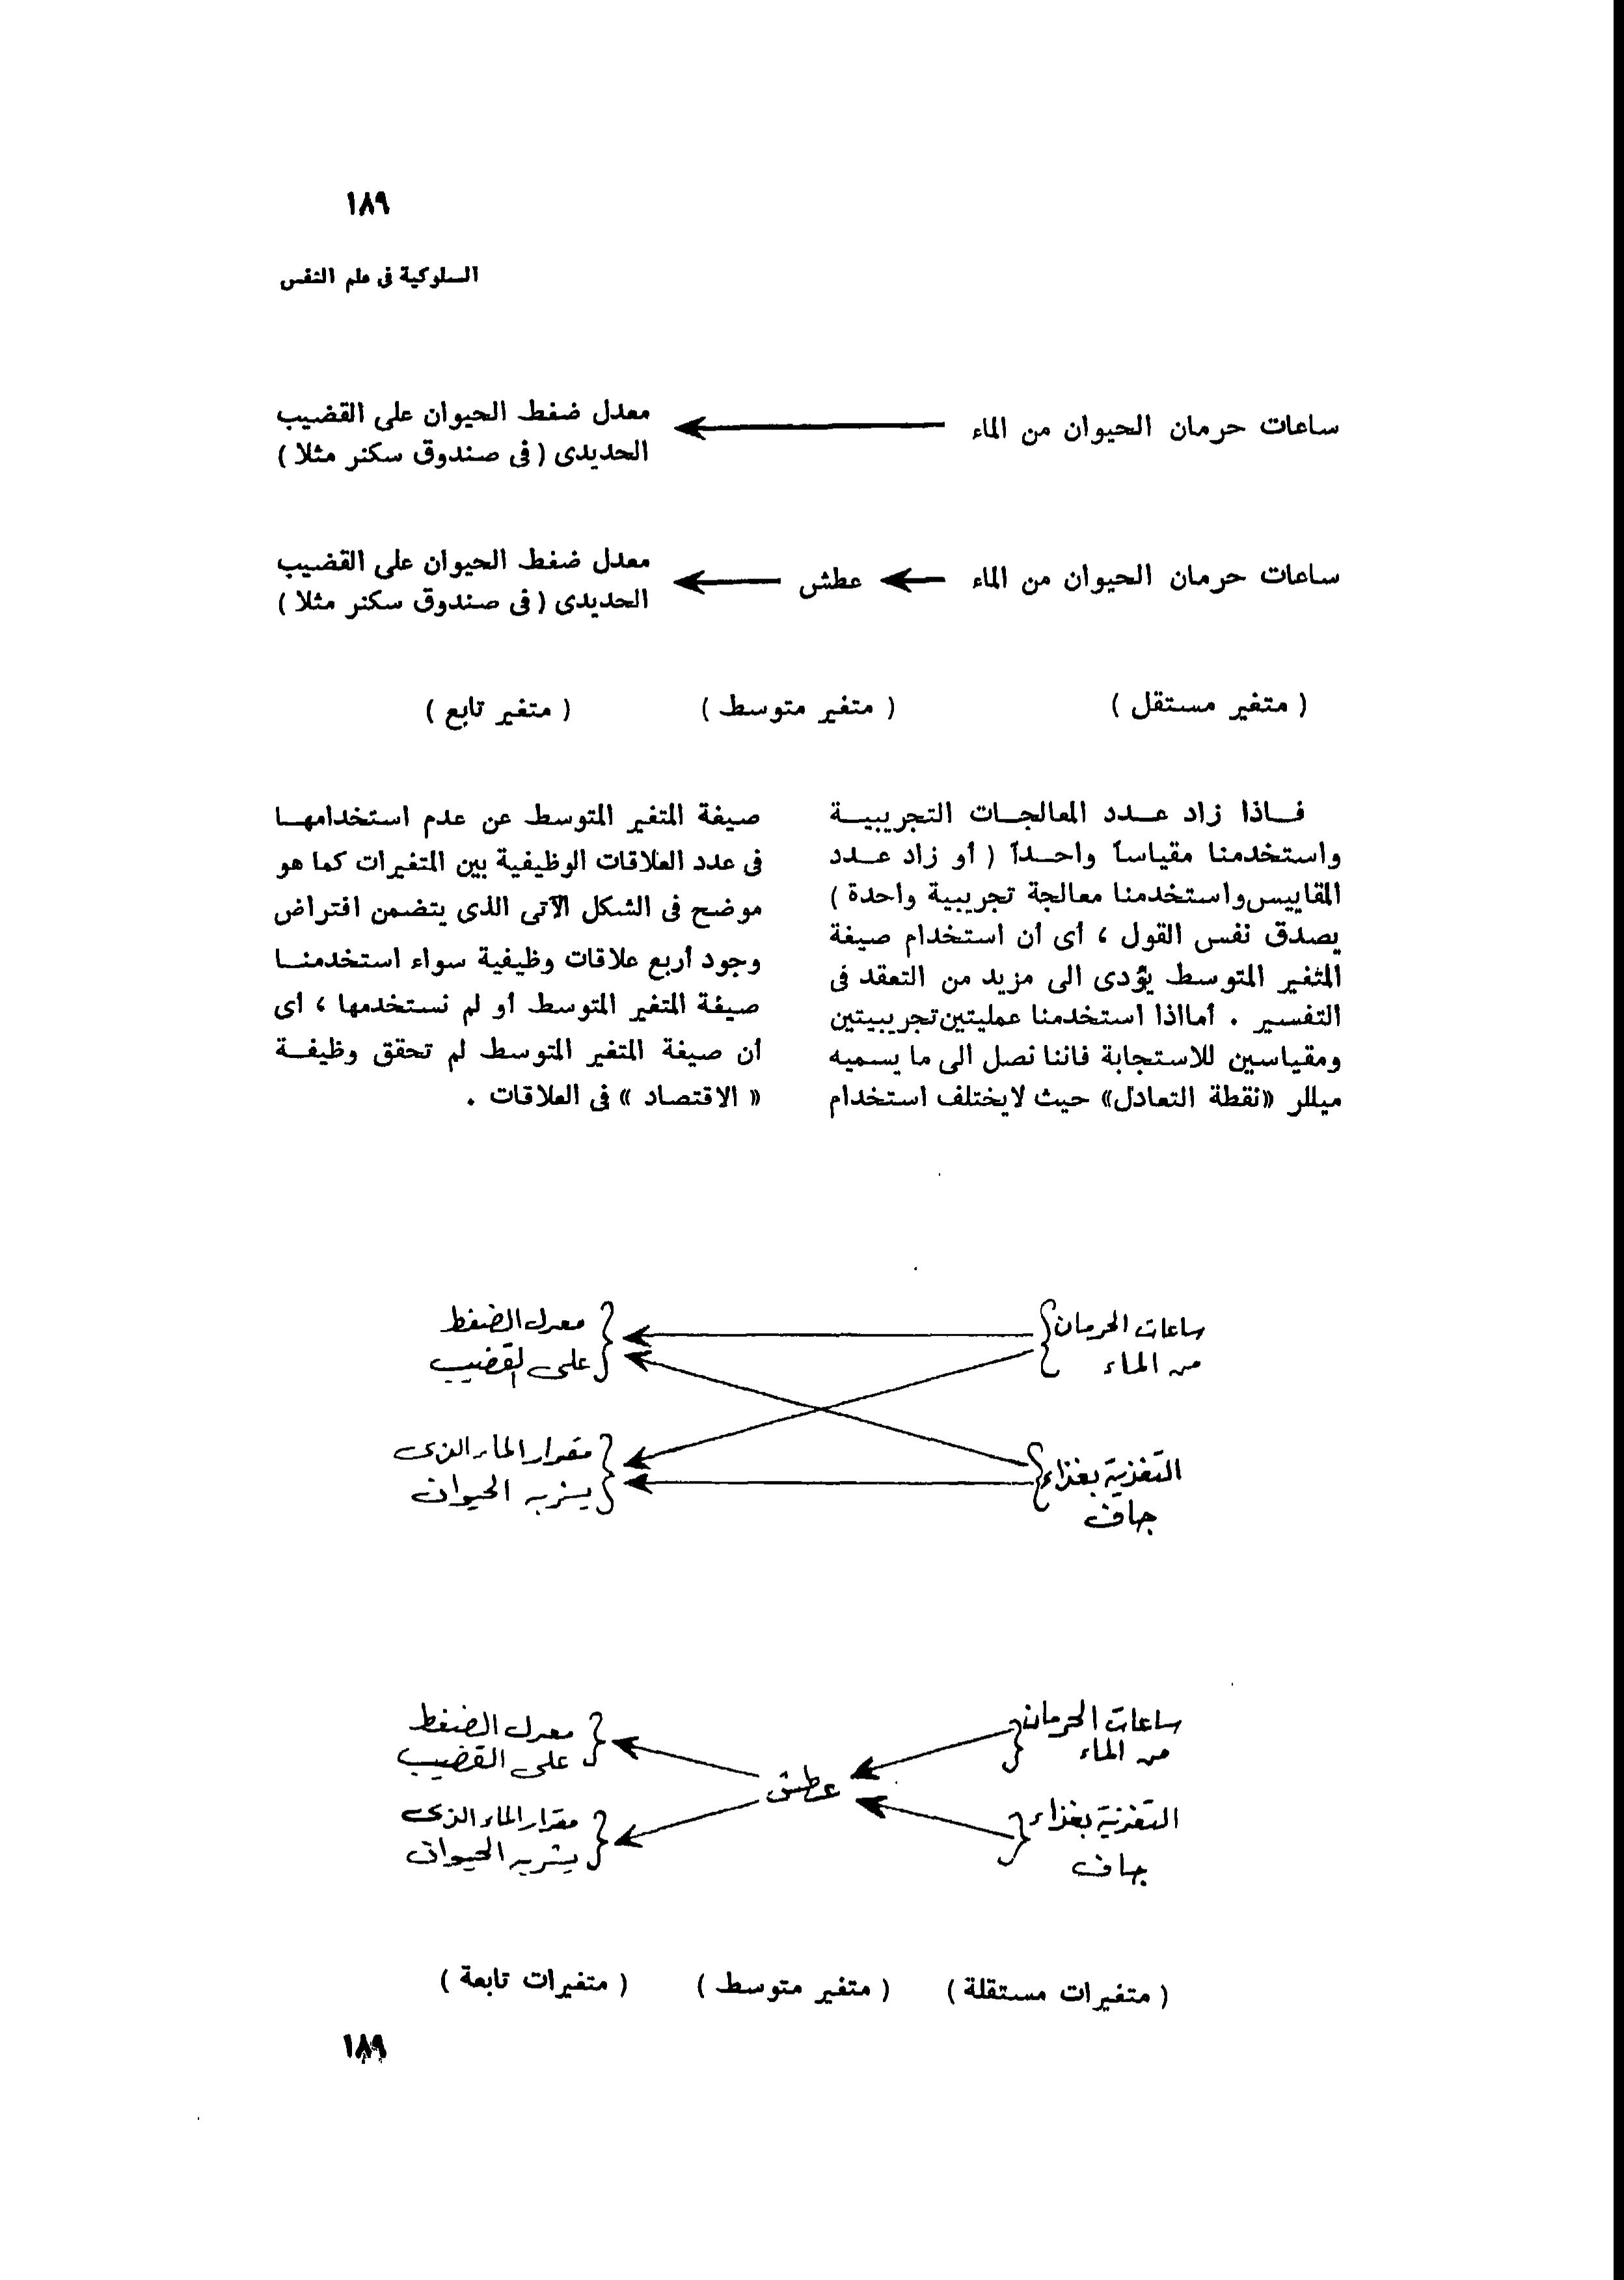 ١٨٩
السلوكية فى علم النفس
ساعات حرمان الحيوان من الماء
معدل ضغط الحيوان على القضيب
الحديدى ( فى صندوق سكنر مثلا )
ساعات حرمان الحيوان من الماء
عطش
معدل ضغط الحيوان على القضيب
الحديدى ( فى صندوق سكنر مثلا )
( متغير مستقل )
( متغير متوسط )
( متغير تابع )
فاذا زاد عدد المعالجات التجريبية
واستخدمنا مقياساً واحداً ( أو زاد عدد
المقاييس واستخدمنا معالجة تجريبية واحدة )
يصدق نفس القول ، أى أن استخدام صيغة
المتغير المتوسط يؤدى الى مزيد من التعقد فى
التفسير . أما اذا استخدمنا عمليتين تجريبيتين
ومقياسين للاستجابة فاننا نصل الى ما يسميه
ميللر «نقطة التعادل» حيث لا يختلف استخدام
صيغة المتغير المتوسط عن عدم استخدامها
فى عدد العلاقات الوظيفية بين المتغيرات كما هو
موضح فى الشكل الآتى الذى يتضمن افتراض
وجود أربع علاقات وظيفية سواء استخدمنا
صيغة المتغير المتوسط أو لم نستخدمها ، أى
أن صيغة المتغير المتوسط لم تحقق وظيفة
« الاقتصاد » فى العلاقات .
ساعات الحرمان
من الماء
معدل الضغط
على القضيب
التغذية بغذاء
جاف
مقدار الماء الذى
يشربه الحيوان
ساعات الحرمان
من الماء
التغذية بغذاء
جاف
عطش
معدل الضغط
على القضيب
مقدار الماء الذى
يشربه الحيوان
( متغيرات مستقلة )
( متغير متوسط )
( متغيرات تابعة )
١٨٩